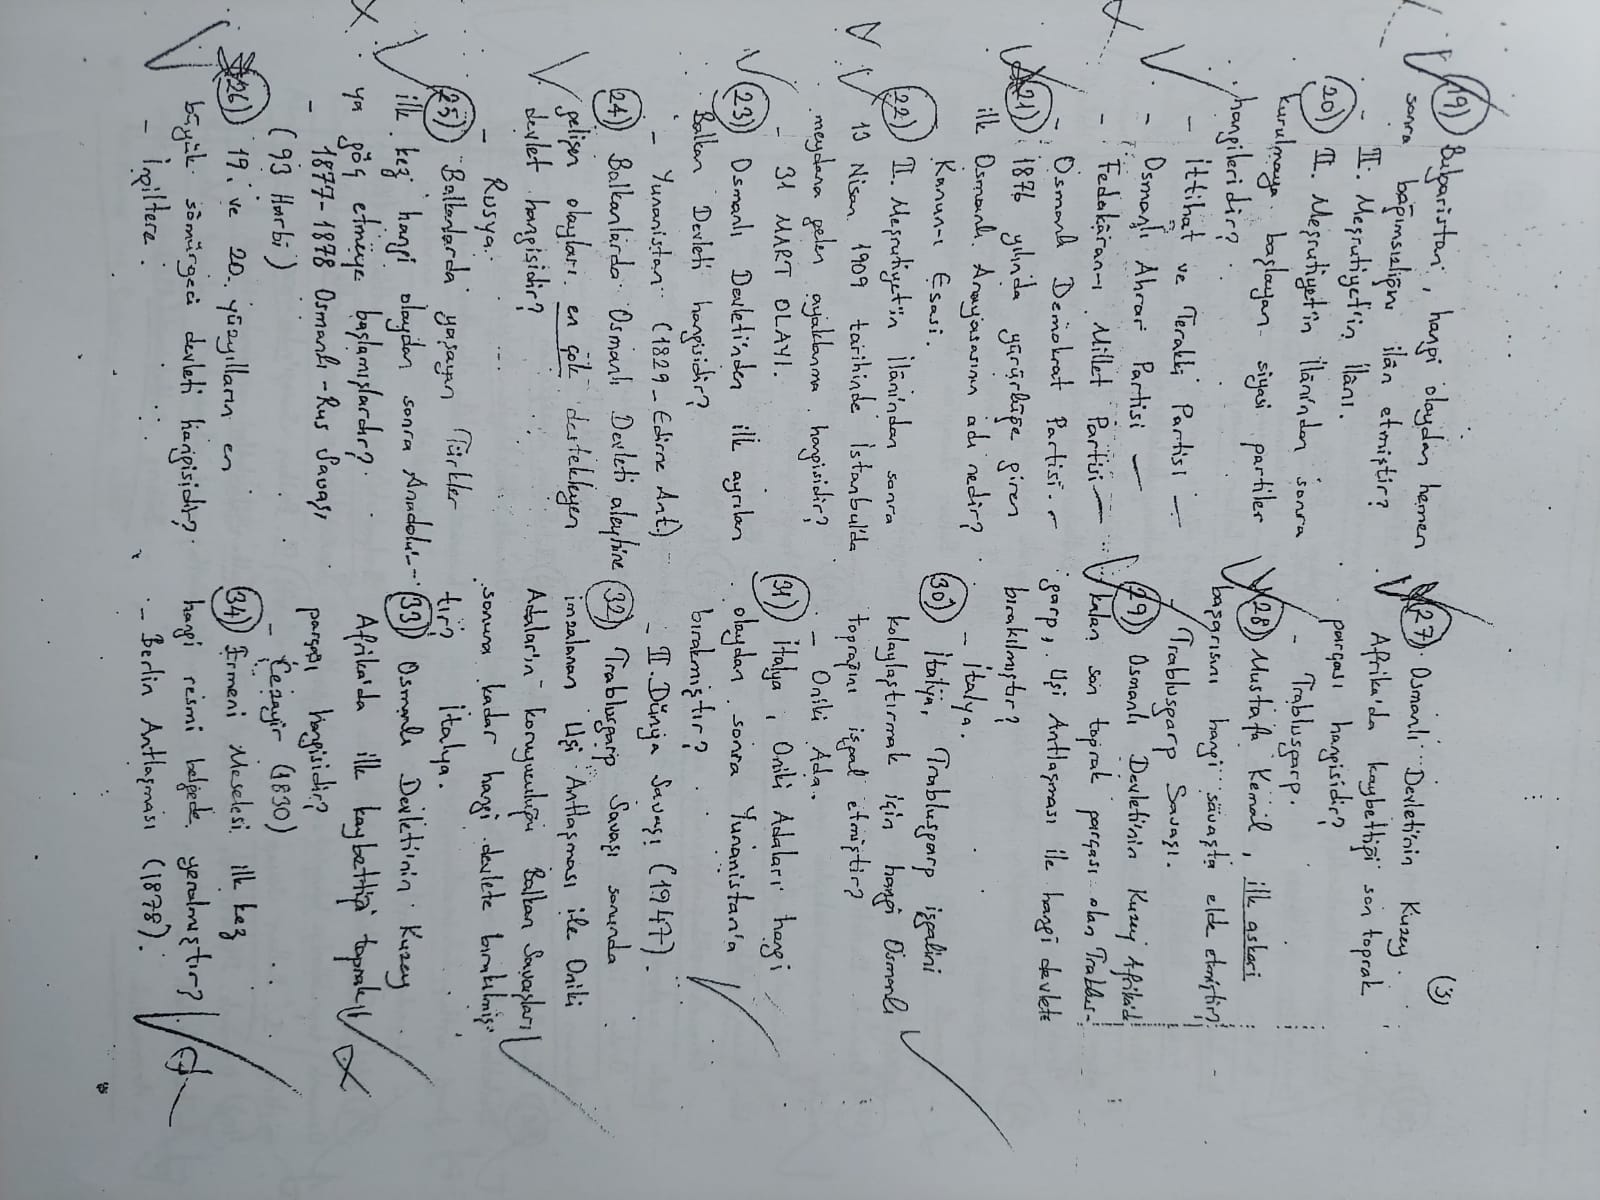 (3)
19) Bulgaristan, hangi olaydan hemen
sonra bağımsızlığını ilân etmiştir?
- II. Meşrutiyet'in İlânı.
20) II. Meşrutiyet'in İlânı'ndan sonra
kurulmaya başlayan siyasi partiler
hangileridir?
- İttihat ve Terakki Partisi
- Osmanlı Ahrar Partisi
- Fedakâran-ı Millet Partisi
- Osmanlı Demokrat Partisi.
21) 1876 yılında yürürlüğe giren
ilk Osmanlı Anayasasının adı nedir?
Kanun-ı Esasi.
22) II. Meşrutiyet'in İlânı'ndan sonra
13 Nisan 1909 tarihinde İstanbul'da
meydana gelen ayaklanma hangisidir?
- 31 MART OLAYI.
23) Osmanlı Devleti'nden ilk ayrılan
Balkan Devleti hangisidir?
- Yunanistan (1829 - Edirne Ant.)
24) Balkanlarda Osmanlı Devleti aleyhine
gelişen olayları en çok destekleyen
devlet hangisidir?
- Rusya.
25) Balkanlarda yaşayan Türkler
ilk kez hangi olaydan sonra Anadolu'-
ya göç etmeye başlamışlardır?
- 1877-1878 Osmanlı-Rus Savaşı
(93 Harbi)
26) 19. ve 20. yüzyılların en
büyük sömürgeci devleti hangisidir?
- İngiltere.
27) Osmanlı Devleti'nin Kuzey
Afrika'da kaybettiği son toprak
parçası hangisidir?
- Trablusgarp.
28) Mustafa Kemal, ilk askeri
başarısını hangi savaşta elde etmiştir?
- Trablusgarp Savaşı.
29) Osmanlı Devleti'nin Kuzey Afrika'd
kalan son toprak parçası olan Trablus-
garp, Uşi Antlaşması ile hangi devlete
bırakılmıştır?
- İtalya.
30) İtalya, Trablusgarp işgalini
kolaylaştırmak için hangi Osmanlı
toprağını işgal etmiştir?
- Oniki Ada.
31) İtalya, Oniki Adaları hangi
olaydan sonra Yunanistan'a
bırakmıştır?
- II. Dünya Savaşı (1947).
32) Trablusgarp Savaşı sonunda
imzalanan Uşi Antlaşması ile Oniki
Adalar'ın koruyuculuğu Balkan Savaşları
sonuna kadar hangi devlete bırakılmış-
tır? İtalya.
33) Osmanlı Devleti'nin Kuzey
Afrika'da ilk kaybettiği toprak
parçası hangisidir?
- Cezayir (1830)
34) Ermeni Meselesi ilk kez
hangi resmi belgede yeralmıştır?
- Berlin Antlaşması (1878).